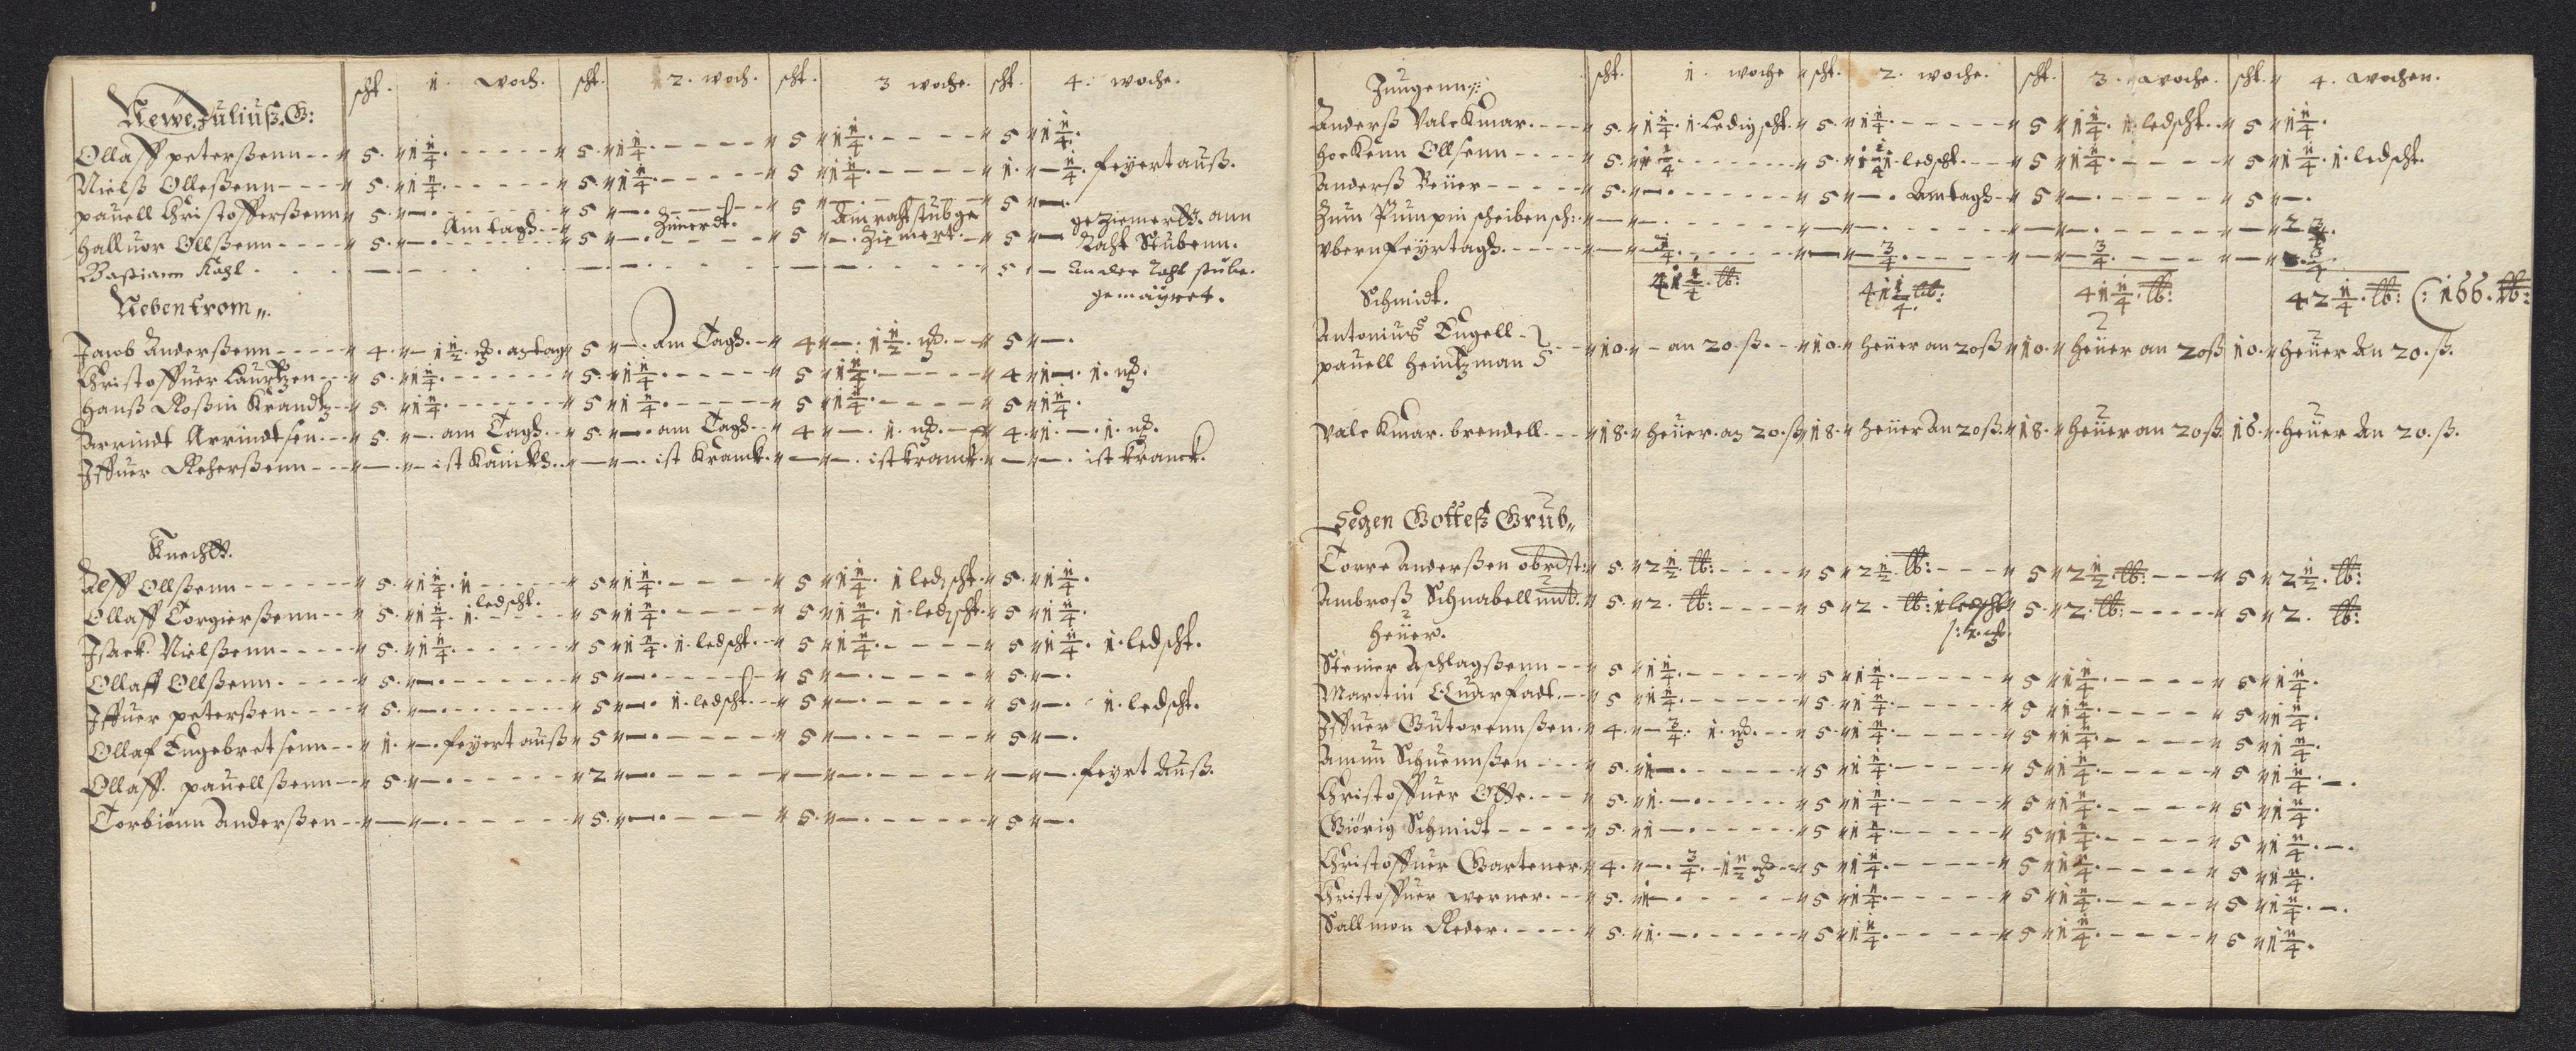 scht. 1. woch. scht. 2. woch. scht. 3 woche. scht. 4. woche.
Newe Juliuß. G:
Ollaff peterßenn 5. 1 1/4. 5. 1 1/4. 5 1 1/4. 5 1 1/4.
Nielß Olleßenn 5. 1 1/4. 5. 1 1/4. 5 1 1/4. 1. — 1/4. feyert auß.
pauell Christofferßenn 5. —. 5 —. 5 —. 5 —.
Halluor Ollßenn 5. —. Am tagh 5 —. Zimerdt. 5 —. Am raht stub ge Ziemert. 5 — ge Ziemerdt. ann Raht Stubenn.
Bastiann Kohl — — — 5 — An der raht stube. gemäyret.
Neben trom.
Jacob Anderßenn 4. — 1 1/2. am tag 5 —. am Tagh. 4 —. 1 1/2. 5 —.
Christoffuer Laurtzen 5. 1 1/4. 5. 1 1/4. 5 1 1/4. 4 1 —. 1.
Hanß Roßin Krandtz 5. 1 1/4. 5 1 1/4. 5 1 1/4. 5 1 1/4.
Arrindt Arrindtsen. 5. —. am Tagh. 5. —. am Tagh 4 —. 1. 4. 1. —. 1.
Iffuer Reherßenn — — ist — —. ist Kranck. — —. ist kranck. — —. ist kranck.
Knechtt.
Alff Ollßenn 5. 1 1/4. 1 ledscht. 5 1 1/4. 5 1 1/4. 1 ledscht. 5. 1 1/4.
Ollaff Torgierßenn 5. 1 1/4. 1. 5 1 1/4. 5 1 1/4. 1. ledscht. 5 1 1/4.
Isack Nielßenn 5. 1 1/4. 5 1 1/4. 1. ledscht. 5 1 1/4. 5 1 1/4. 1. ledscht.
Ollaff Ollßenn 5. —. 5 —. 5 —. 5. —.
Iffuer peterßen 5. —. 5 —. 1. ledscht. 5 —. 5 —. 1. ledscht.
Ollaf Engebretsenn 1. —. feyert auß 5 —. 5 —. 5 —.
Ollaff. pauellßenn 5 —. 2 —. — —. — —. feyrt Auß.
Torbiönn Anderßen — —. 5. —. 5. —. 5 —.
scht. 1. woche scht. 2. woche. scht. 3. woche. scht. 4. wochen.
Jungenn.
Anderß Valckmar. 5. 1 1/4. 1. Ledig scht. 5. 1 1/4. 5 1 1/4. 1. ledscht. 5 1 1/4.
Hoekenn Ollsenn 5. 1 1/4. 5. 1 1/4 1 ledscht. 5 1 1/4. 5 1 1/4. 1. ledscht.
Anderß Beüer 5. —. 5 —. Am tagh 5 —. 5 —.
Zum Pumpin scheiben sch: — —. — —. — —. — 2
vbern feyrtagh. — 1/4. — 3/4. — 3/4. — 3/4.
41 1/4. tt: 41 1/4 tt: 41 1/4. tt: 42 1/4. tt: (: 166. tt:
Schmidt.
Antoniuß Engell
pauell Heintzman 10. an 20. ß. 10. Heüer an 20 ß 10. Heüer an 20 ß 10. Heüer An 20. ß.
Valckmar. brendell 18. Heüer. an 20. ß 18. Heüer An 20 ß. 18. Heüer an 20 ß. 16. Heüer An 20. ß.
Segen Gotteß Grub
Torre Anderßen obrdst: 5. 2 1/2. tt: 5 2 1/2. tt: 5 2 1/2. tt: 5 2 1/2. tt:
Ambroß Schnabell unt. 5. 2. tt: 5 2. tt: 1 ledscht 5. 2. tt: 5 2. tt:
Heüer.
Steiner Aschlagßenn 5 1 1/4. 5 1 1/4. 5 1 1/4. 5 1 1/4.
Martin Quarfadt. 5 1 1/4. 5. 1 1/4. 5 1 1/4. 5 1 1/4.
Iffuer Gutormßen. 4. — 3/4. 1. 5. 1 1/4. 5 1 1/4. 5 1 1/4.
Amun Schuennßen 5. 1 —. 5 1 1/4. 5 1 1/4. 5 1 1/4. —.
Christoffuer Otte. 5. 1. —. 5 1 1/4. 5 1 1/4. 5 1 1/4.
Giörig Schmidt 5. 1 —. 5 1 1/4. 5 1 1/4. 5 1 1/4. —.
Christoffuer Gartener. 4. —. 3/4. 1 1/2 5 1 1/4. 5 1 1/4. 5 1 1/4.
Christoffuer werner. 5. 1 —. 5 1 1/4. 5 1 1/4. 5 1 1/4. —.
Sallmon Reder. 5. 1. —. 5 1 1/4. 5 1 1/4. 5 1 1/4.